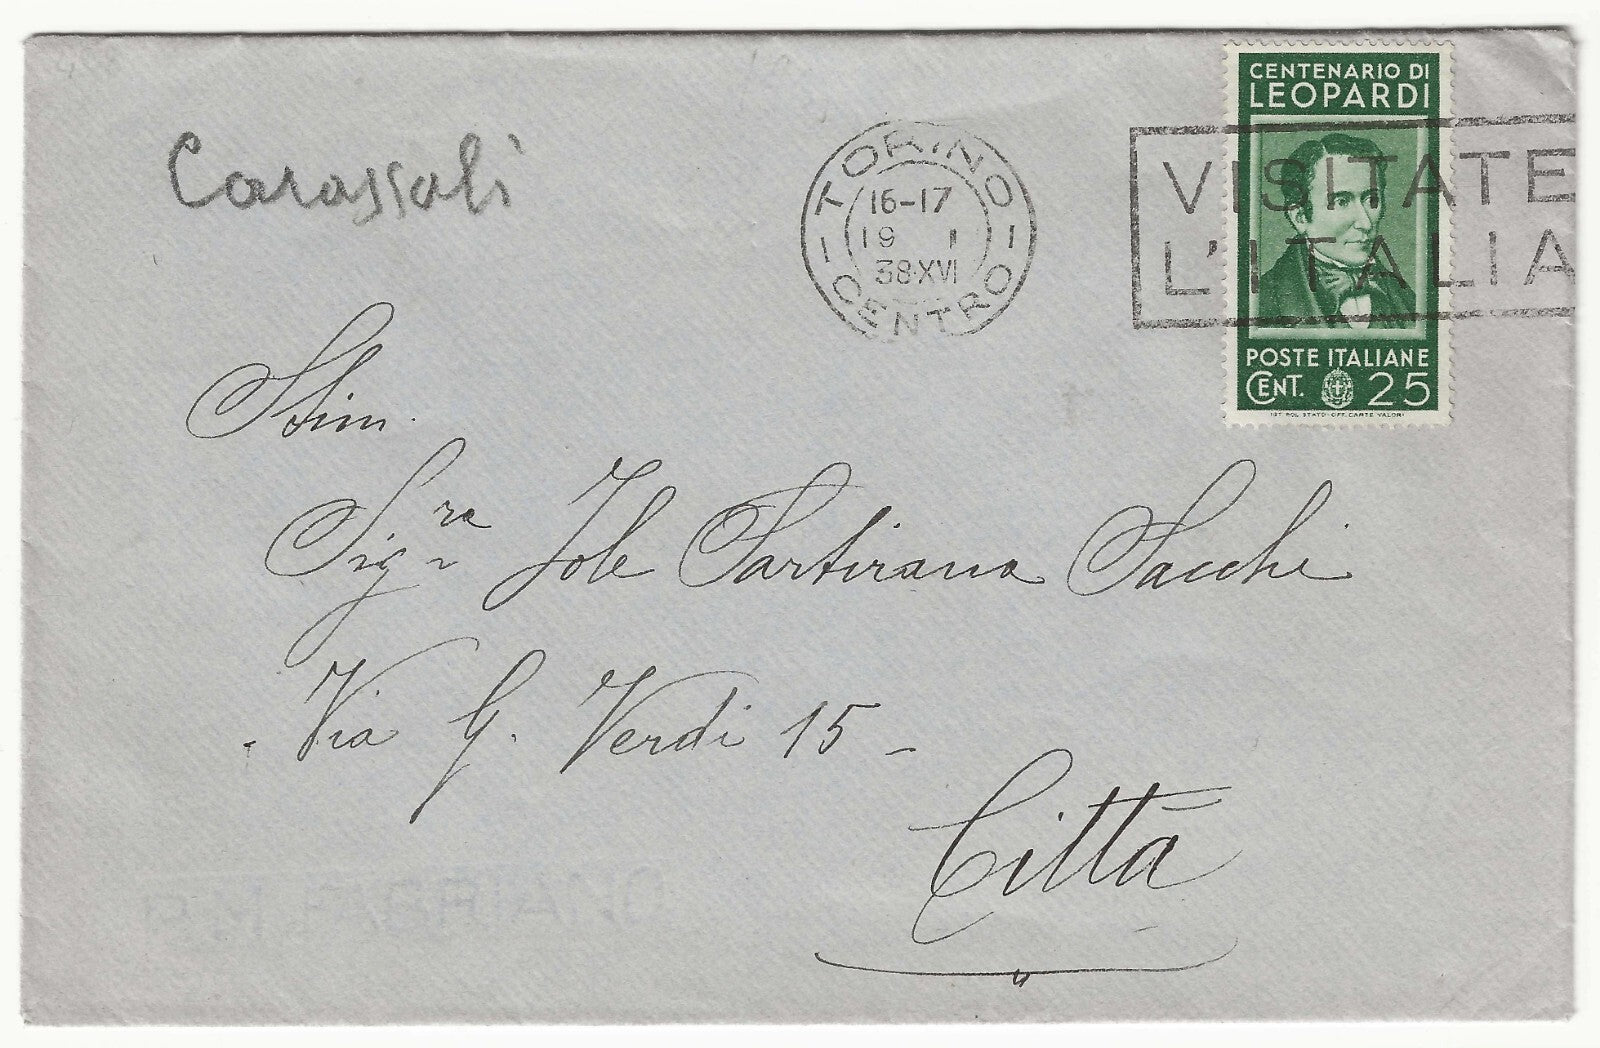 Carassali
TORINO
16-17
19 1
38·XVI
CENTRO
VISITATE
L'ITALIA
CENTENARIO DI
LEOPARDI
POSTE ITALIANE
CENT. 25
IST. POL. STATO-OFF. CARTE VALORI
Stim.
Sig.ra Iole Sartirana Sacchi
Via G. Verdi 15 -
Città